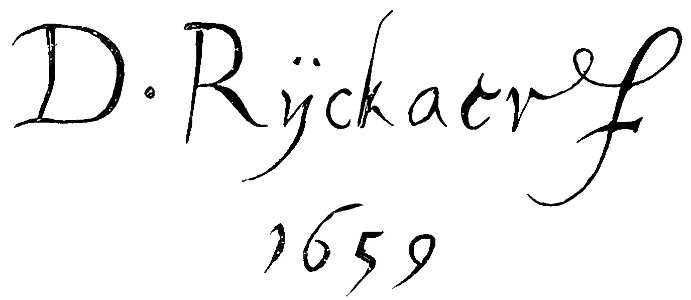 D. Rÿckaert
1659